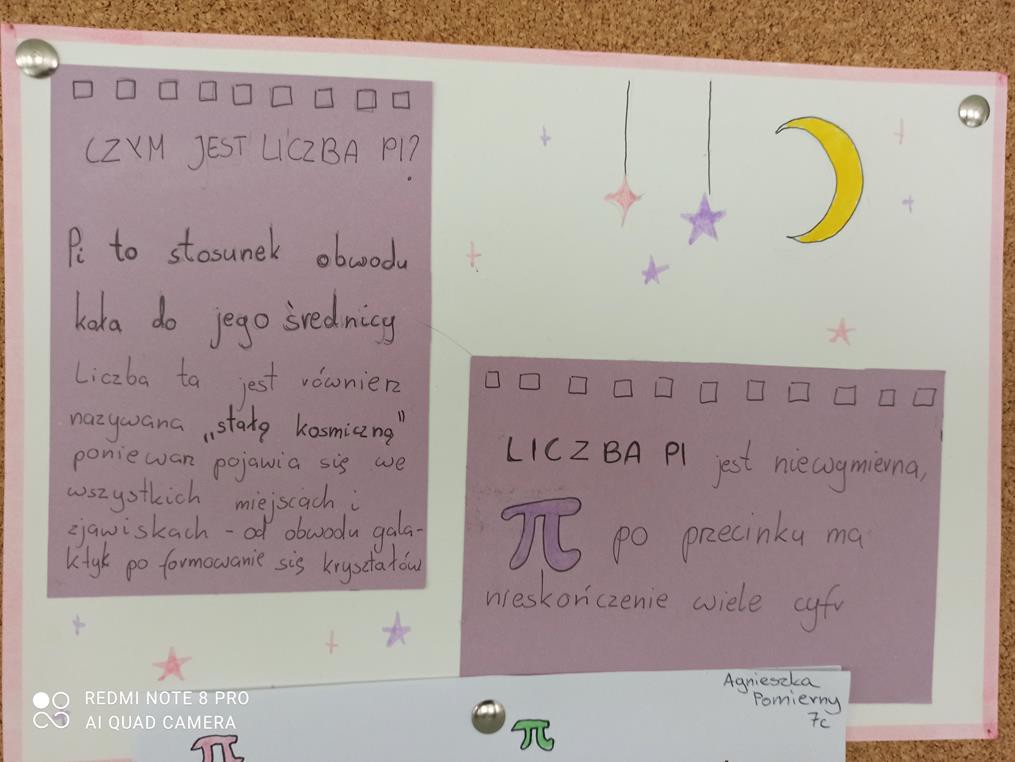 CZYM JEST LICZBA PI?
Pi to stosunek obwodu
koła do jego średnicy
Liczba ta jest równierz
nazywana „stałą kosmiczną"
poniewarz pojawia się we
wszystkich miejscach i
zjawiskach - od obwodu gala-
ktyk po formowanie się kryształów
LICZBA PI jest niewymierna,
π po przecinku ma
nieskończenie wiele cyfr
Agnieszka
Pomierny
7c
π π
REDMI NOTE 8 PRO
AI QUAD CAMERA